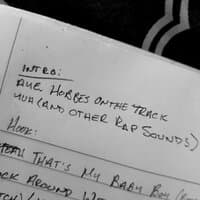 INTRO:
HOBBES ON THE TRACK
HUH (AND OTHER RAP SOUNDS)
HOOK:
YEAH THAT'S MY BABY BOY
ROCK AROUND